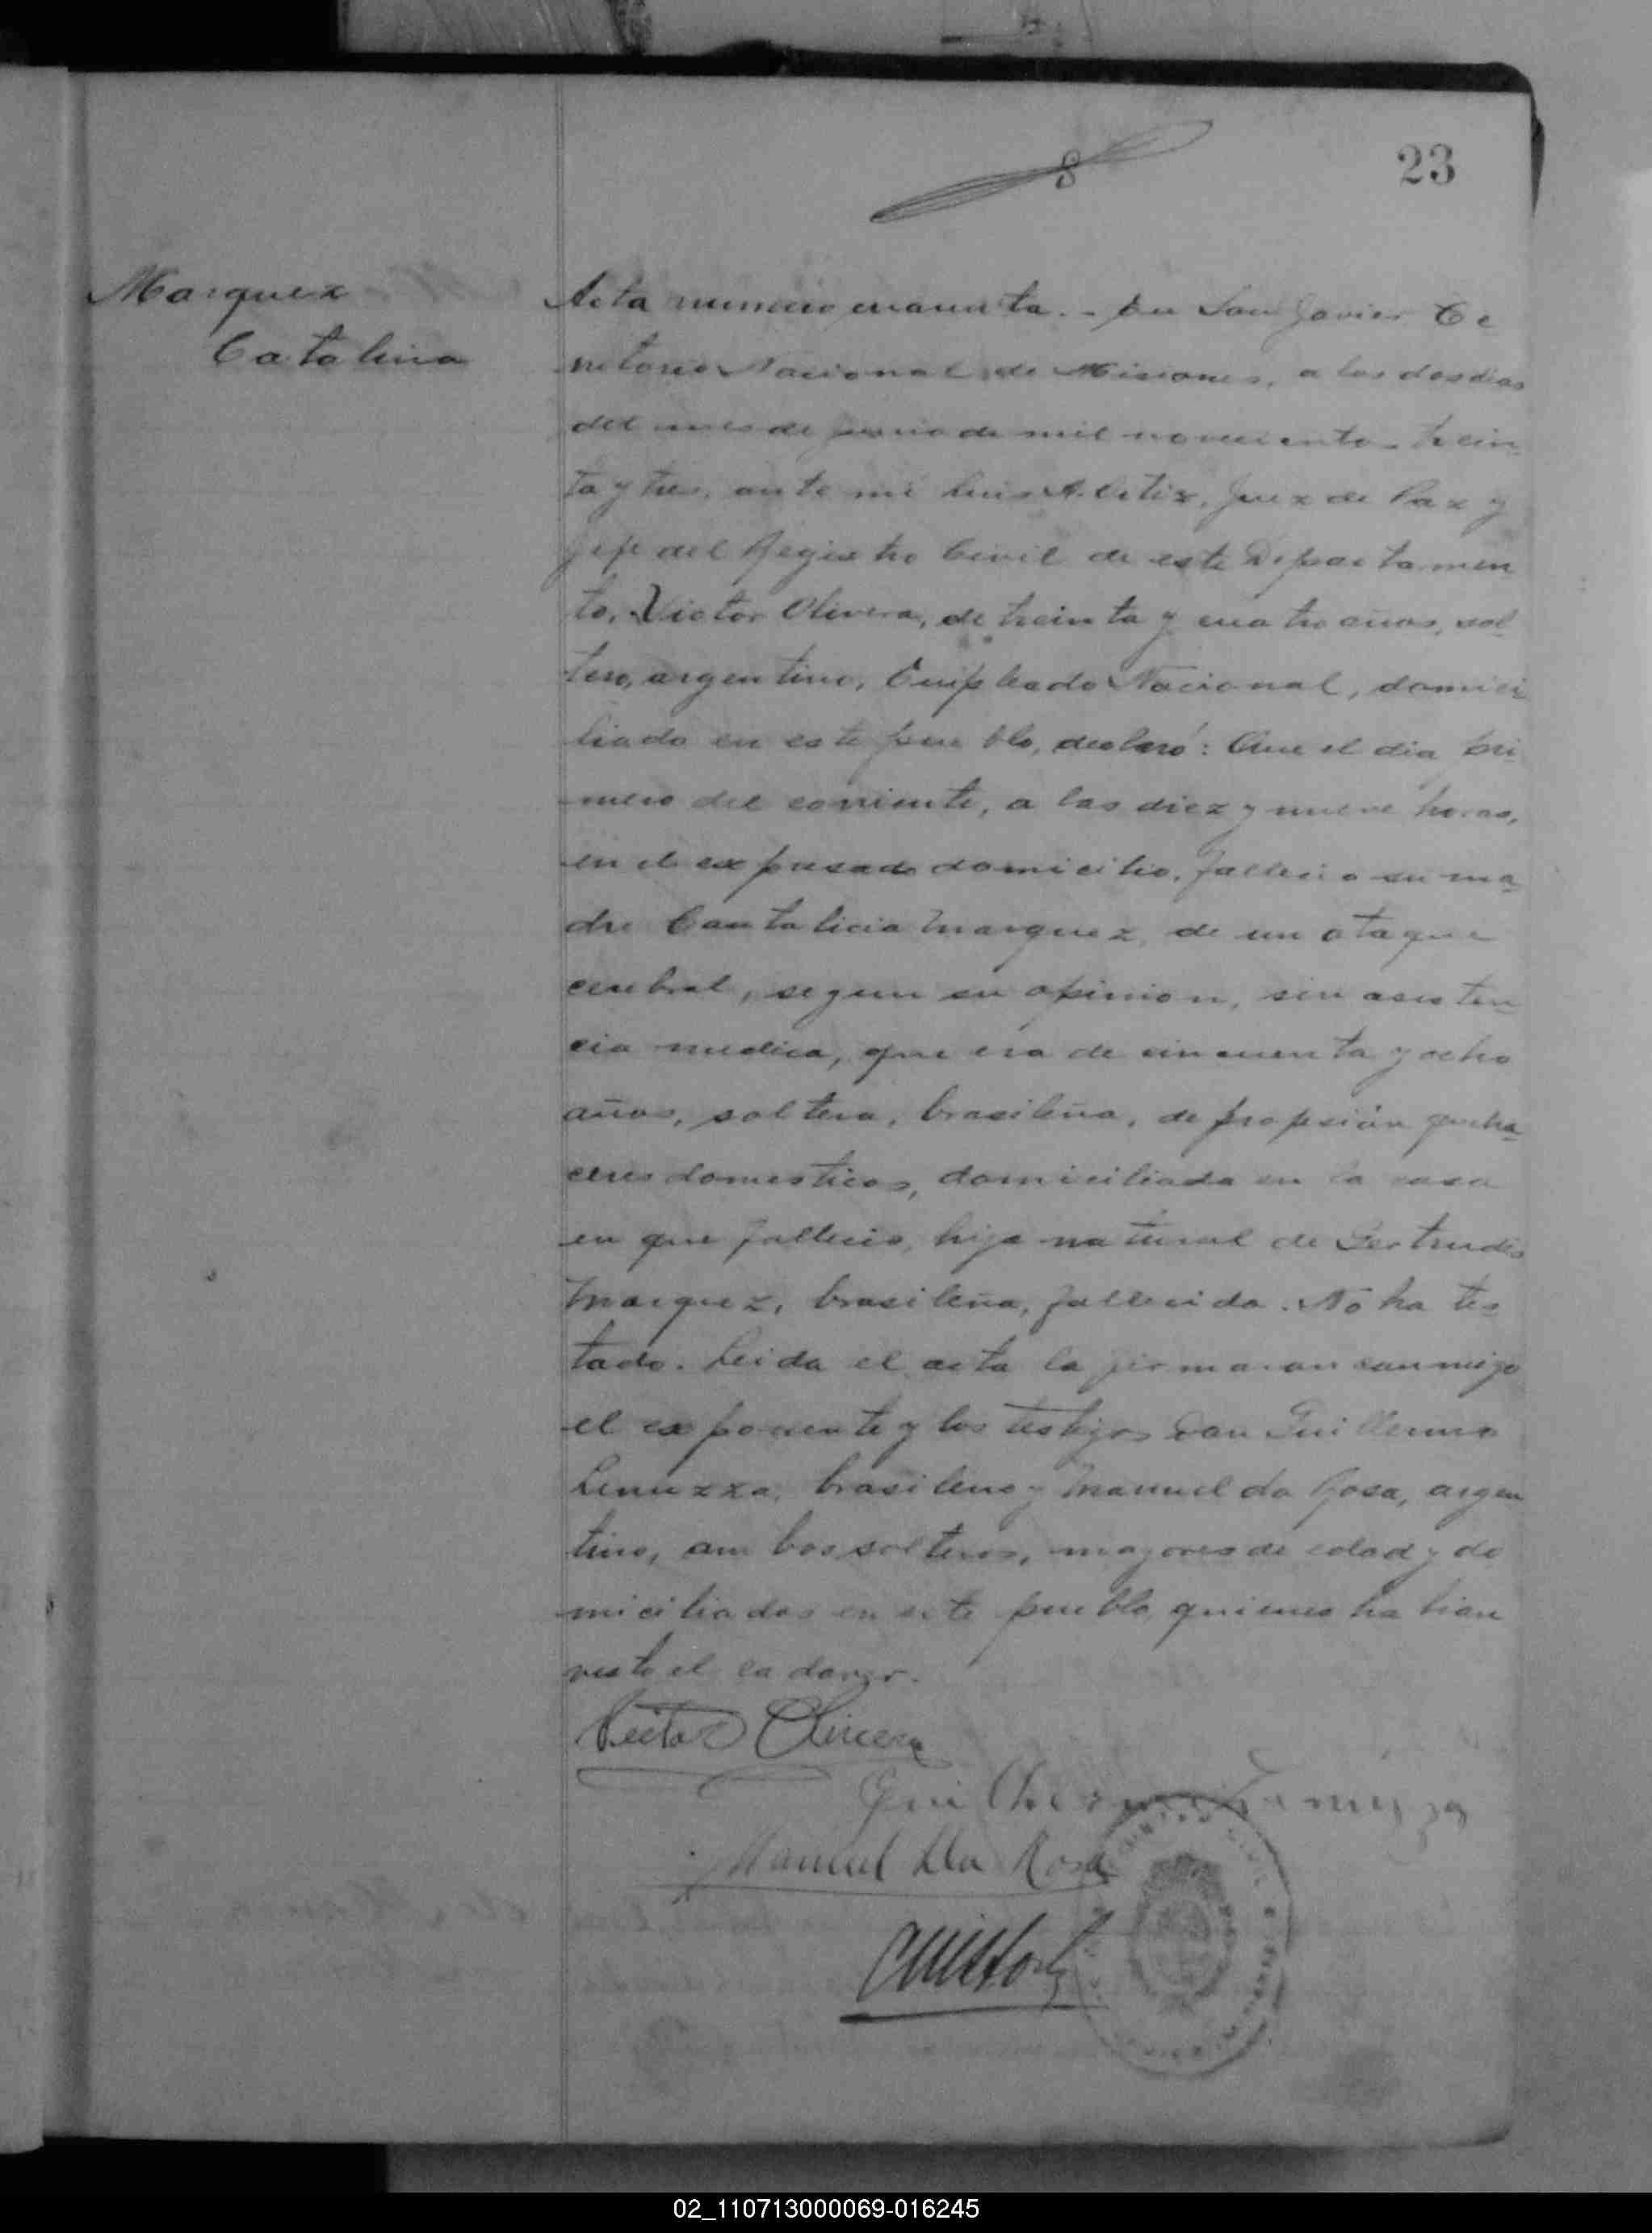 8
23
Marquez
Catalina
Acta numero cuarenta. - En San Javier Te
rritorio Nacional de Misiones, a los dos dias
del mes de junio de mil novecientos trein
ta y tres, ante mi Luis A. Juez de Paz y
Jefe del Registro Civil de este Departamen
to, Victor Olivera, de treinta y cuatro años, sol
tero, argentino, Empleado Nacional, domici
liado en este pueblo, declaró: Que el dia pri-
mero del corriente, a las diez y nueve horas,
en el expresado domicilio, fallecio su ma-
dre Cantalicia Marquez, de un ataque
cerebral, segun su opinion, sin asisten-
cia medica, que era de cincuenta y ocho
años, soltera, brasileña, de profesión queha-
ceres domesticos, domiciliada en la casa
en que fallecio, hija natural de Gertrudis
Marquez, brasileña, fallecida. No ha tes-
tado. Leida el acta la firmaron conmigo
el exponente y los testigos Don Guillermo
Lemuzza, brasileno y Manuel da Rosa, argen
tino, ambos solteros, mayores de edad y do
miciliados en este pueblo, quienes habian
visto el cadaver.
Victor Olivera
Manuel Da Rosa
02_110713000069-016245